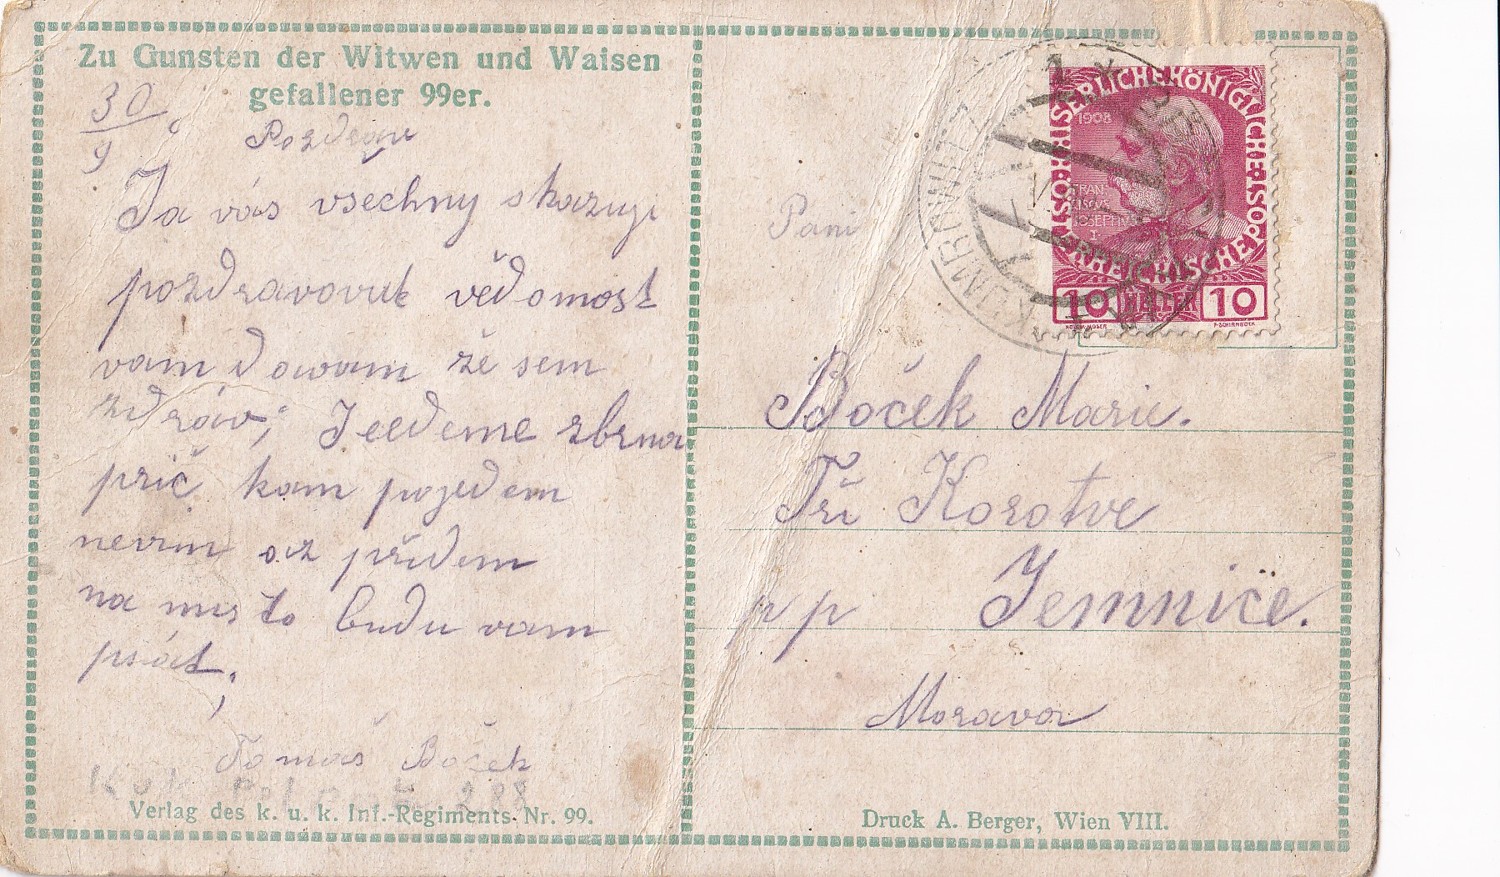 Zu Gunsten der Witwen und Waisen
gefallener 99er.
30
9
Pozdrav
Ja vás vsechny skazugi
pozdravovut vědomost
vam dawam že sem
zdráv; Jeedeme zbrna
prič kam pojedem
nevim až přídem
na misto budu vam
psát;
Tomaš Boček
Verlag des k. u. k. Inf.-Regiments Nr. 99.
KAISERLICHE KÖNIGLICHE
ÖSTERREICHISCHE POST
1908
FRAN
CISCVS
IOSEPHVS
I
10 HELLER 10
Pani
Boček Marie.
Tři Korotve
pp Jemniče.
Morava
Druck A. Berger, Wien VIII.